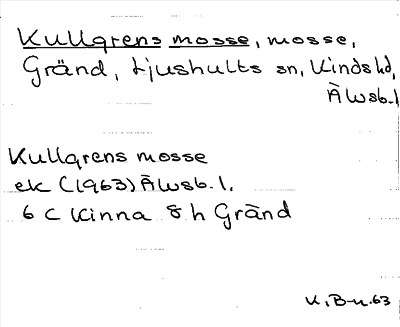 Kullgrens mosse, mosse,
Gränd, Ljushults sn, Kinds hd,
Älvsb. l
Kullgrens mosse
ek (1963) Älvsb. l.
6 C Kinna 8 h Gränd
K. B-n. 63